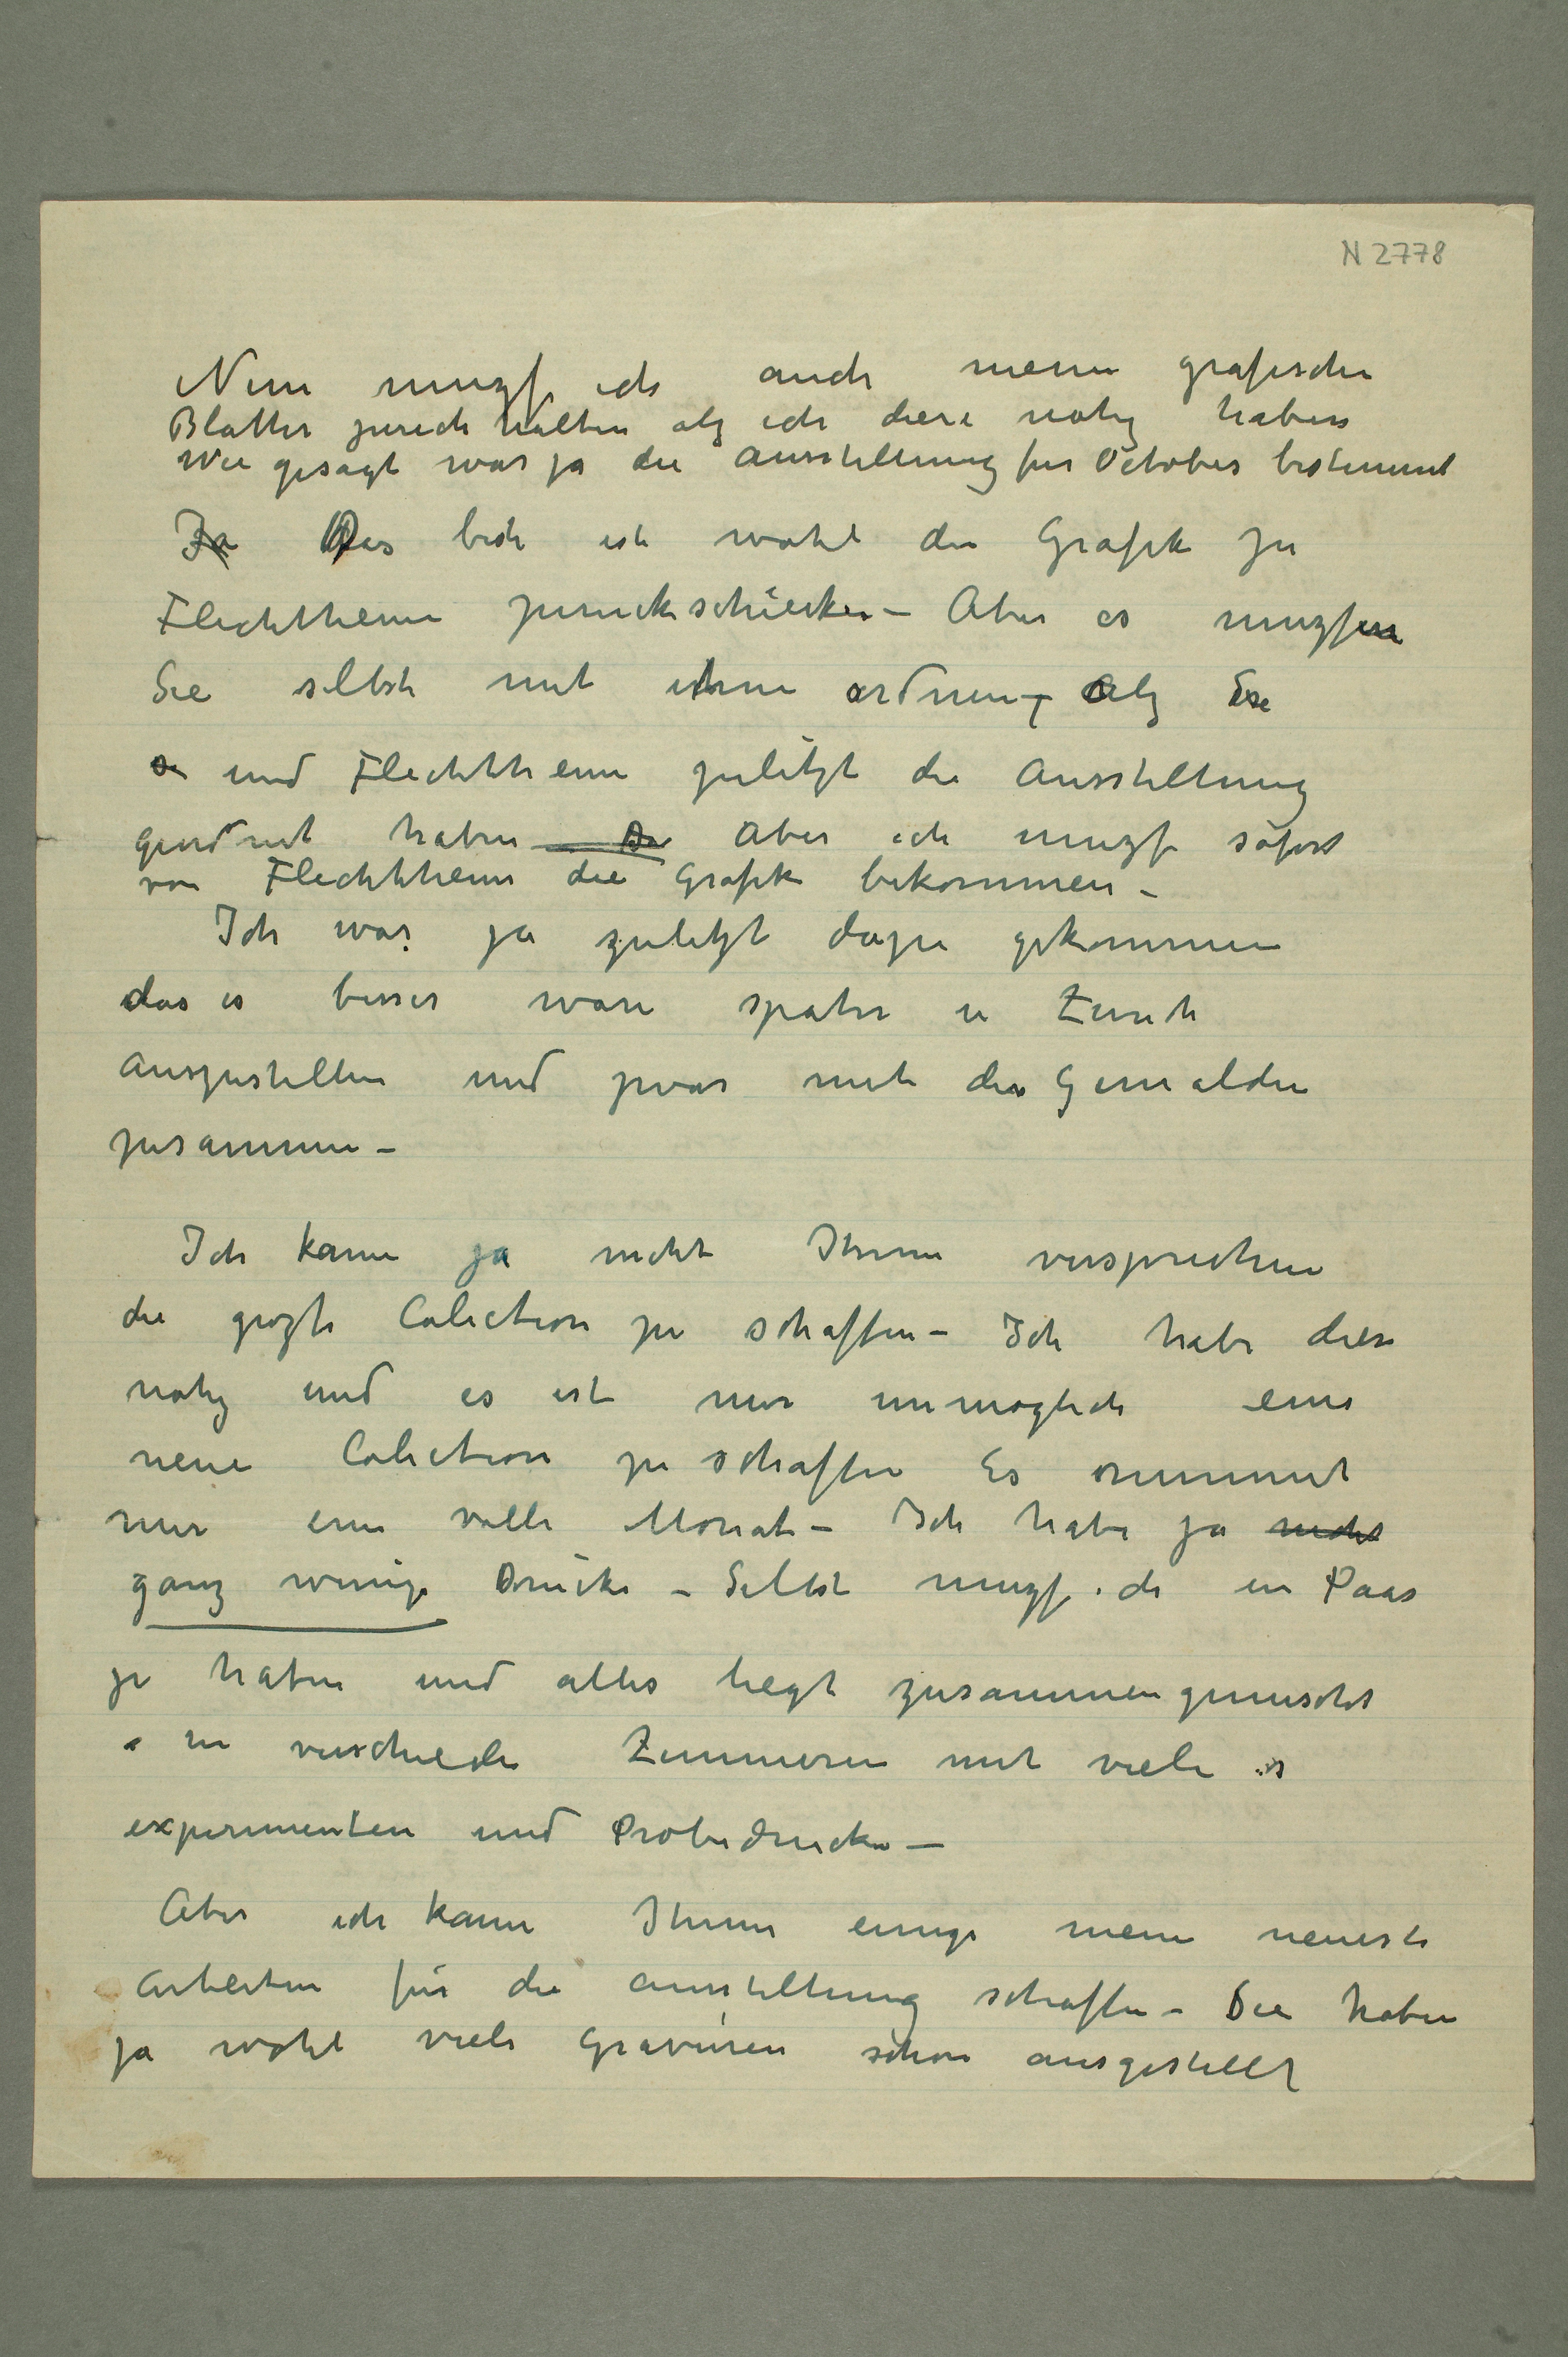 N 2778
Nun muzf ich auch meine grafische
Blatter zurück halten alz ich diese notig haben
Wie gesagt war ja die Ausstellung fur October bestimmt
Ja Das beste ist wohl die Grafik zu
Flechtheim zuruckschicken – Aber es muzfen
Sie selbst mit ihm ordnen – alz Sie
und Flechtheim zuletzt die Ausstellung
geordnet haben – De Aber ich muzf sofort
von Flechtheim die Grafik bekommen –
Ich war ja zuletzt dazu gekommen
das es besser ware spater in Zurich
auszustellen und zwar mit den Gemalden
zusammen –
Ich kann ja nicht Ihnen versprechen
die grozte Colection zu schaffen – Ich habe diese
notig und es ist mir unmoglich eine
neue Colection zu schaffen Es nimmt
mir eine volle Monat – Ich habe ja nicht
ganz wenige Drucke – Selbst muzf ich ein Paar
zu haben und alles liegt zusammengemischt
in verschiede Zimmeren mit viele
experimenten und Probedrucke –
Aber ich kann Ihnen einige meine neueste
Arbeiten für die Ausstellung schaffen – Sie haben
ja wohl viele Gravüren schon ausgestellt